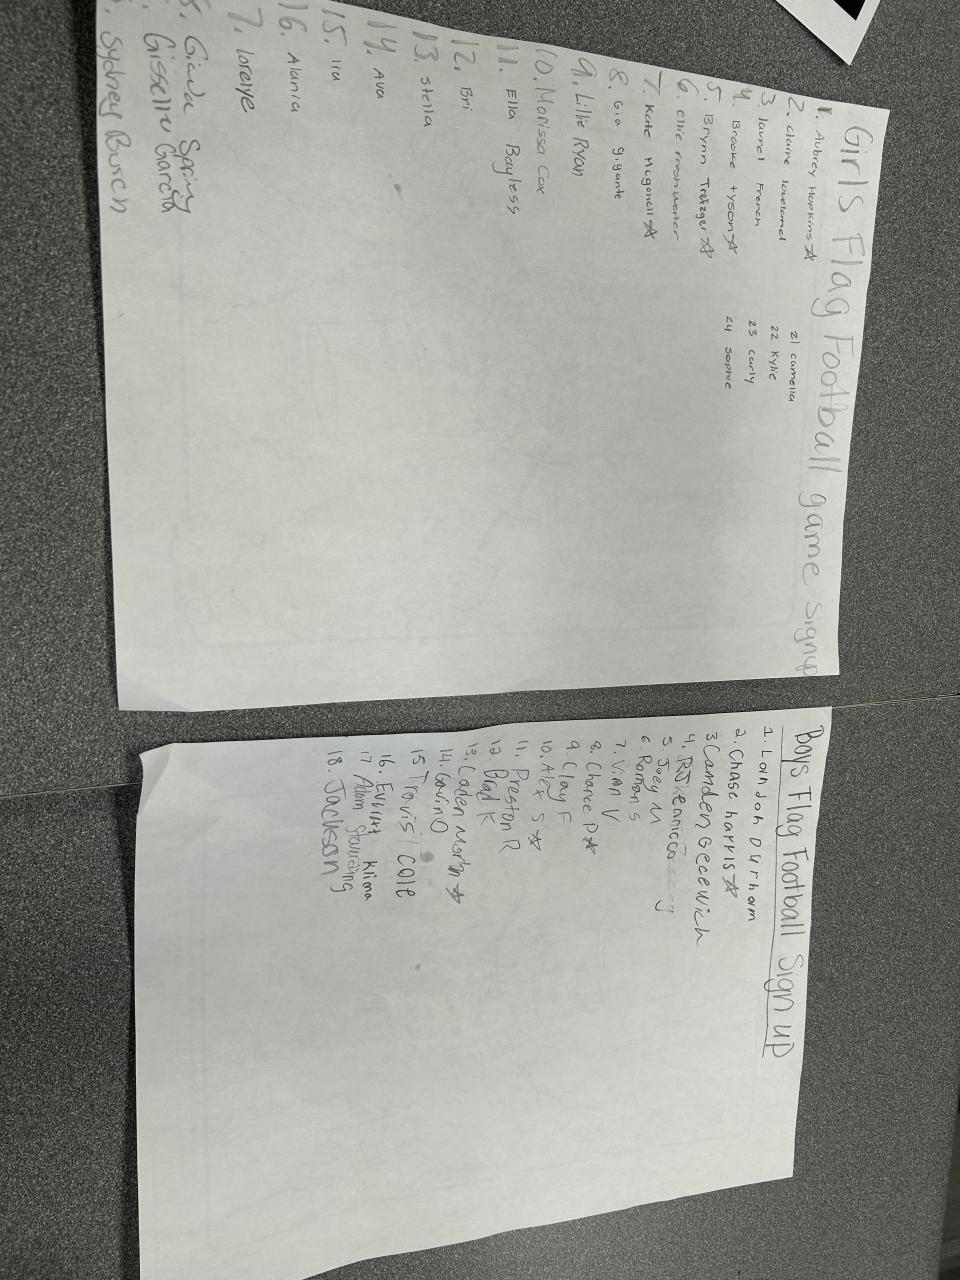 Girls Flag Football game signup
1. Aubrey Hopkins ☆
2. claire loveland
3. laurel French
4. Brooke tyson ☆
5. Brynn Tretzger ☆
6. ellie
7. Kate Mcgonell ☆
8. Gia gigante
9. Lillie Ryan
10. Marissa Cox
11. Ella Bayless
12. Bri
13. Stella
14. Ava
15. Ila
16. Alania
7. lorelye
Giada Spring
Gisselle Garcia
Sydney Burch
21 camella
22 Kylie
23 carly
24 Sophie
Boys Flag Football Sign up
1. Landon Durham
2. Chase harris ☆
3 Camden Gecewich
4. RJ
5. Joey M
6. Roman S
7. Vinn V
8. Chance P ☆
9. Clay F
10. Alex S ☆
11. Preston R
12 Brad K
13. Caden Martin ☆
14. Gavin O
15 Travis Cole
16. Everett Klima
17 Adam
18. Jackson